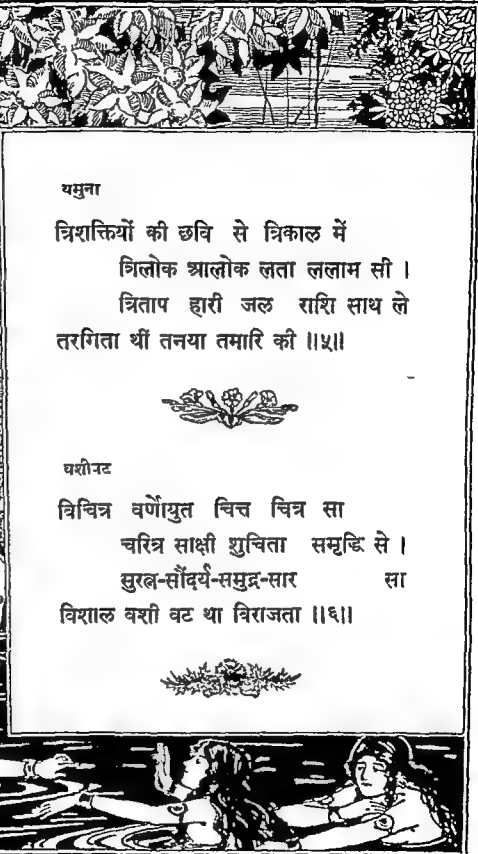 यमुना
त्रिशक्तियों की छवि से त्रिकाल में
त्रिलोक आलोक लता ललाम सी ।
त्रिताप हारी जल राशि साथ ले
तरगिता थीं तनया तमारि की ॥५॥
वशीवट
विचित्र वर्णोयुत चित्त चित्र सा
चरित्र साक्षी शुचिता समृद्धि से ।
सुरत्न-सौंदर्य-समुद्र-सार सा
विशाल वशी वट था विराजता ॥६॥